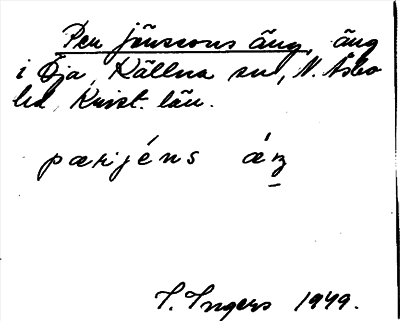 Per Jönssons äng, äng
i Öja, Källna sn, N. Åsbo
hd, Krist. län.
pærjéns áŋ
I. Ingers 1949.